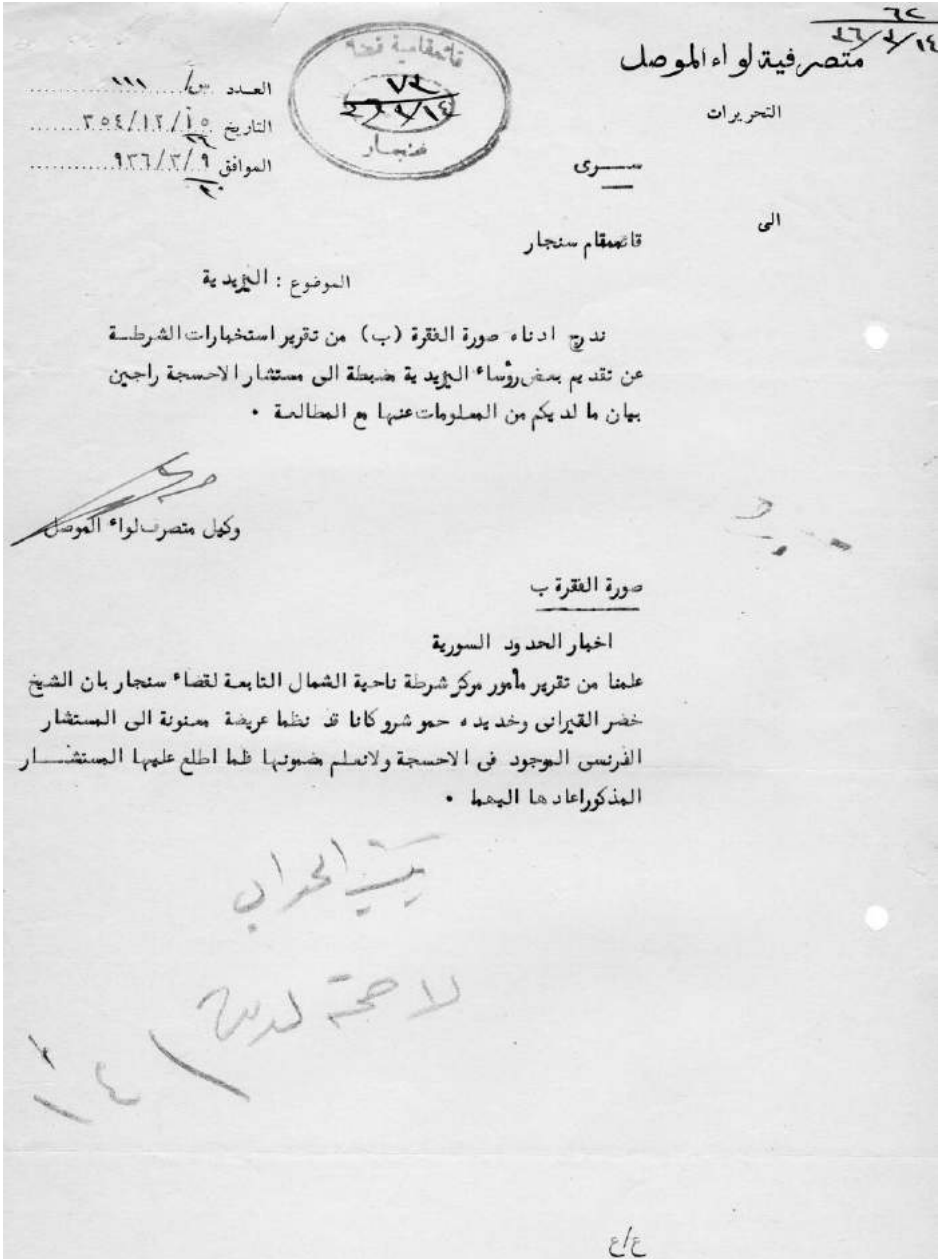 ٦٢
٣٦/٣/١٤
متصرفية لواء الموصل
التحريرات
سرى
قائمقامية قضاء
٧٢
٣٦/٣/١٤
سنجار
العدد س/ ١١١
التاريخ ١٥/١٢/٣٥٤
الموافق ٩/٣/٩٣٦
الى
قائممقام سنجار
الموضوع : اليزيدية
ندرج ادناه صورة الفقرة (ب) من تقرير استخبارات الشرطة
عن تقديم بعض رؤساء اليزيدية مضبطة الى مستشار الاحسجة راجين
بيان ما لديكم من المعلومات عنها مع المطالعة ٠
وكيل متصرف لواء الموصل
صورة الفقرة ب
اخبار الحدود السورية
علمنا من تقرير مأمور مركز شرطة ناحية الشمال التابعة لقضاء سنجار بان الشيخ
خضر القيرانى وخديده حمو شرو كانا قد نظما عريضة معنونة الى المستشار
الفرنسى الموجود فى الاحسجة ولانعلم مضمونها فلما اطلع عليها المستشار
المذكور اعادها اليهما ٠
الجواب
لا صحة
١٤
ع/ع